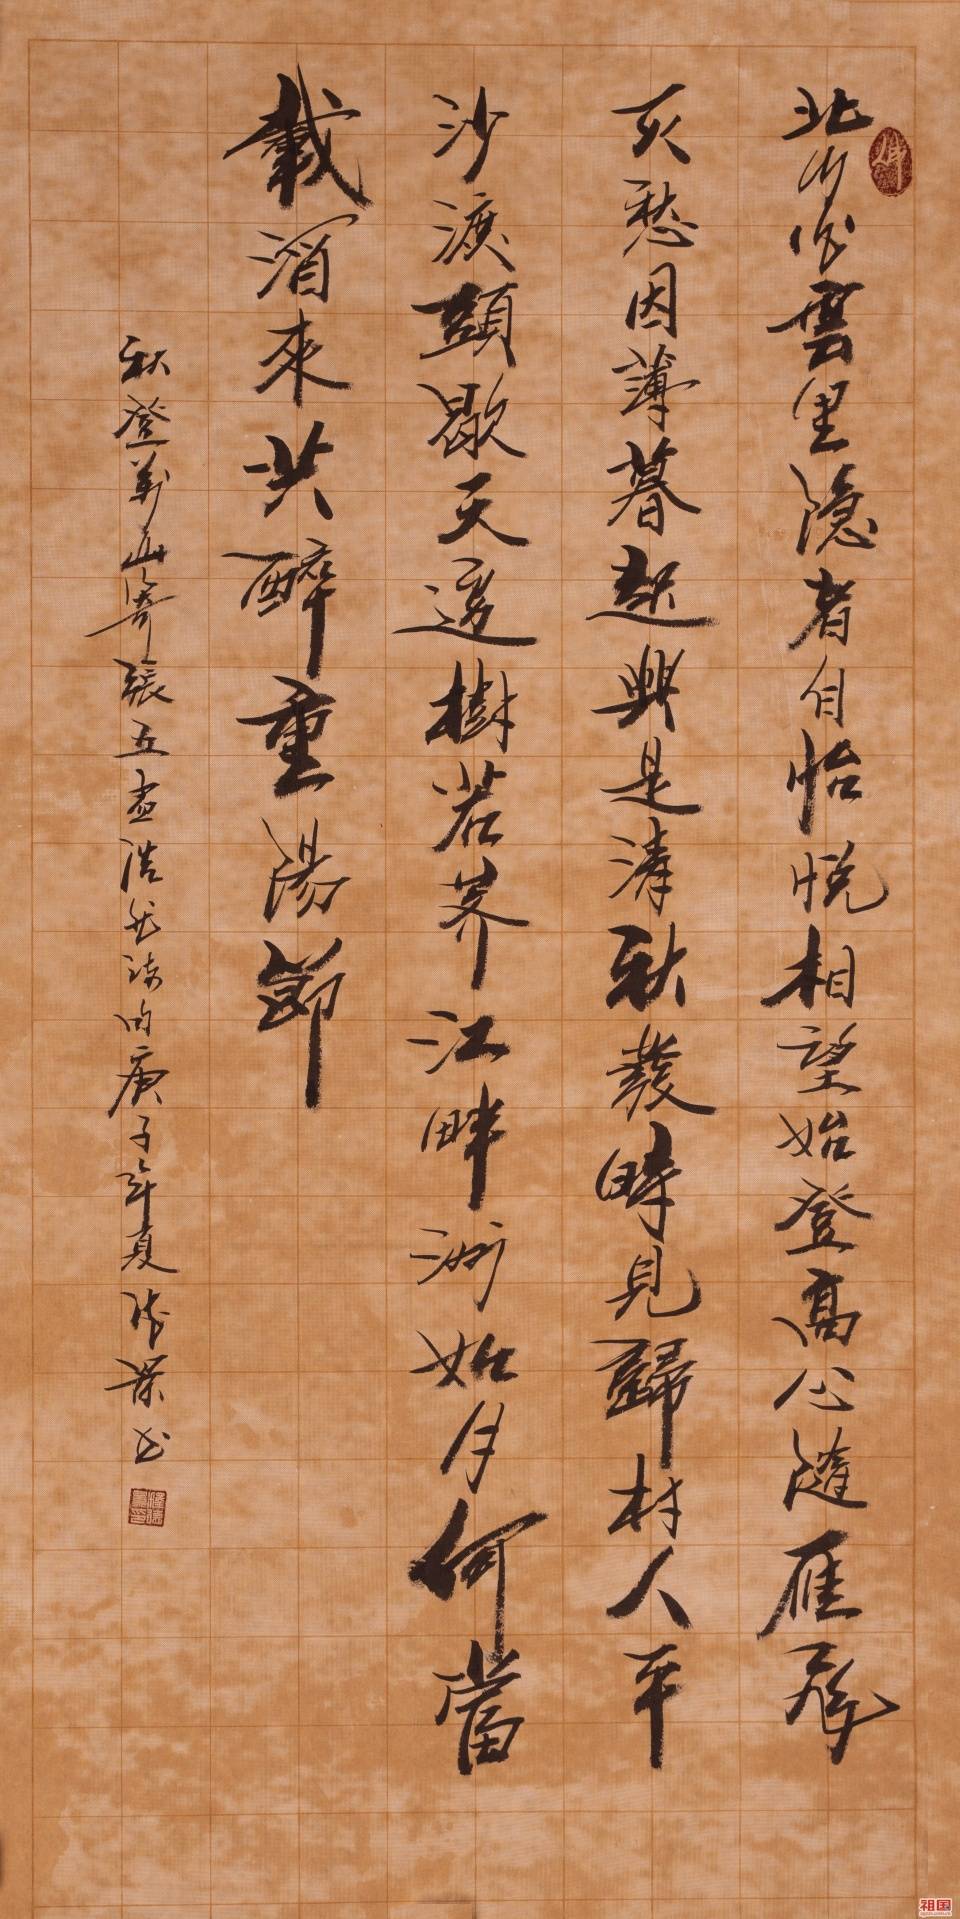 北山白雲里隐者自怡悦相望始登高心隨雁飛
灭愁因薄暮起興是清秋發時見歸村人平
沙渡頭歇天邊樹若荠江畔洲如月何當
載酒來共醉重陽節
秋登萬山寄張五孟浩然詩句庚子年夏書
祖国